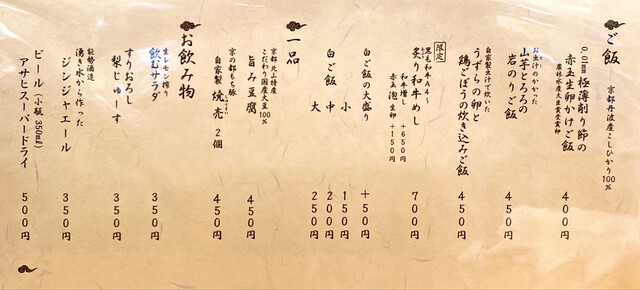 ご飯
京都丹波産こしひかり100%
0.01㎜ 極薄削り節の
赤玉生卵かけご飯
農林水産大臣賞受賞卵
400円
お出汁のかかった
山芋とろろの
岩のりご飯
450円
自家製出汁で炊いた
うずらの卵と
鶏ごぼうの炊き込みご飯
450円
限定
黒毛和牛A4〜
炙り和牛めし
700円
和牛増し +650円
赤玉泡生卵 +150円
白ご飯の大盛り
+50円
白ご飯 小
150円
中
200円
大
250円
一品
京都北山特産
こだわり国産大豆100%
旨み豆腐
450円
京の都もち豚
自家製 焼売 2個
しゅうまい
450円
お飲み物
生レモン搾り
飲むサラダ
350円
すりおろし
梨じゅーす
350円
能勢酒造
湧き水から作った
ジンジャエール
350円
ビール(小瓶 350㎖)
アサヒスーパードライ
500円